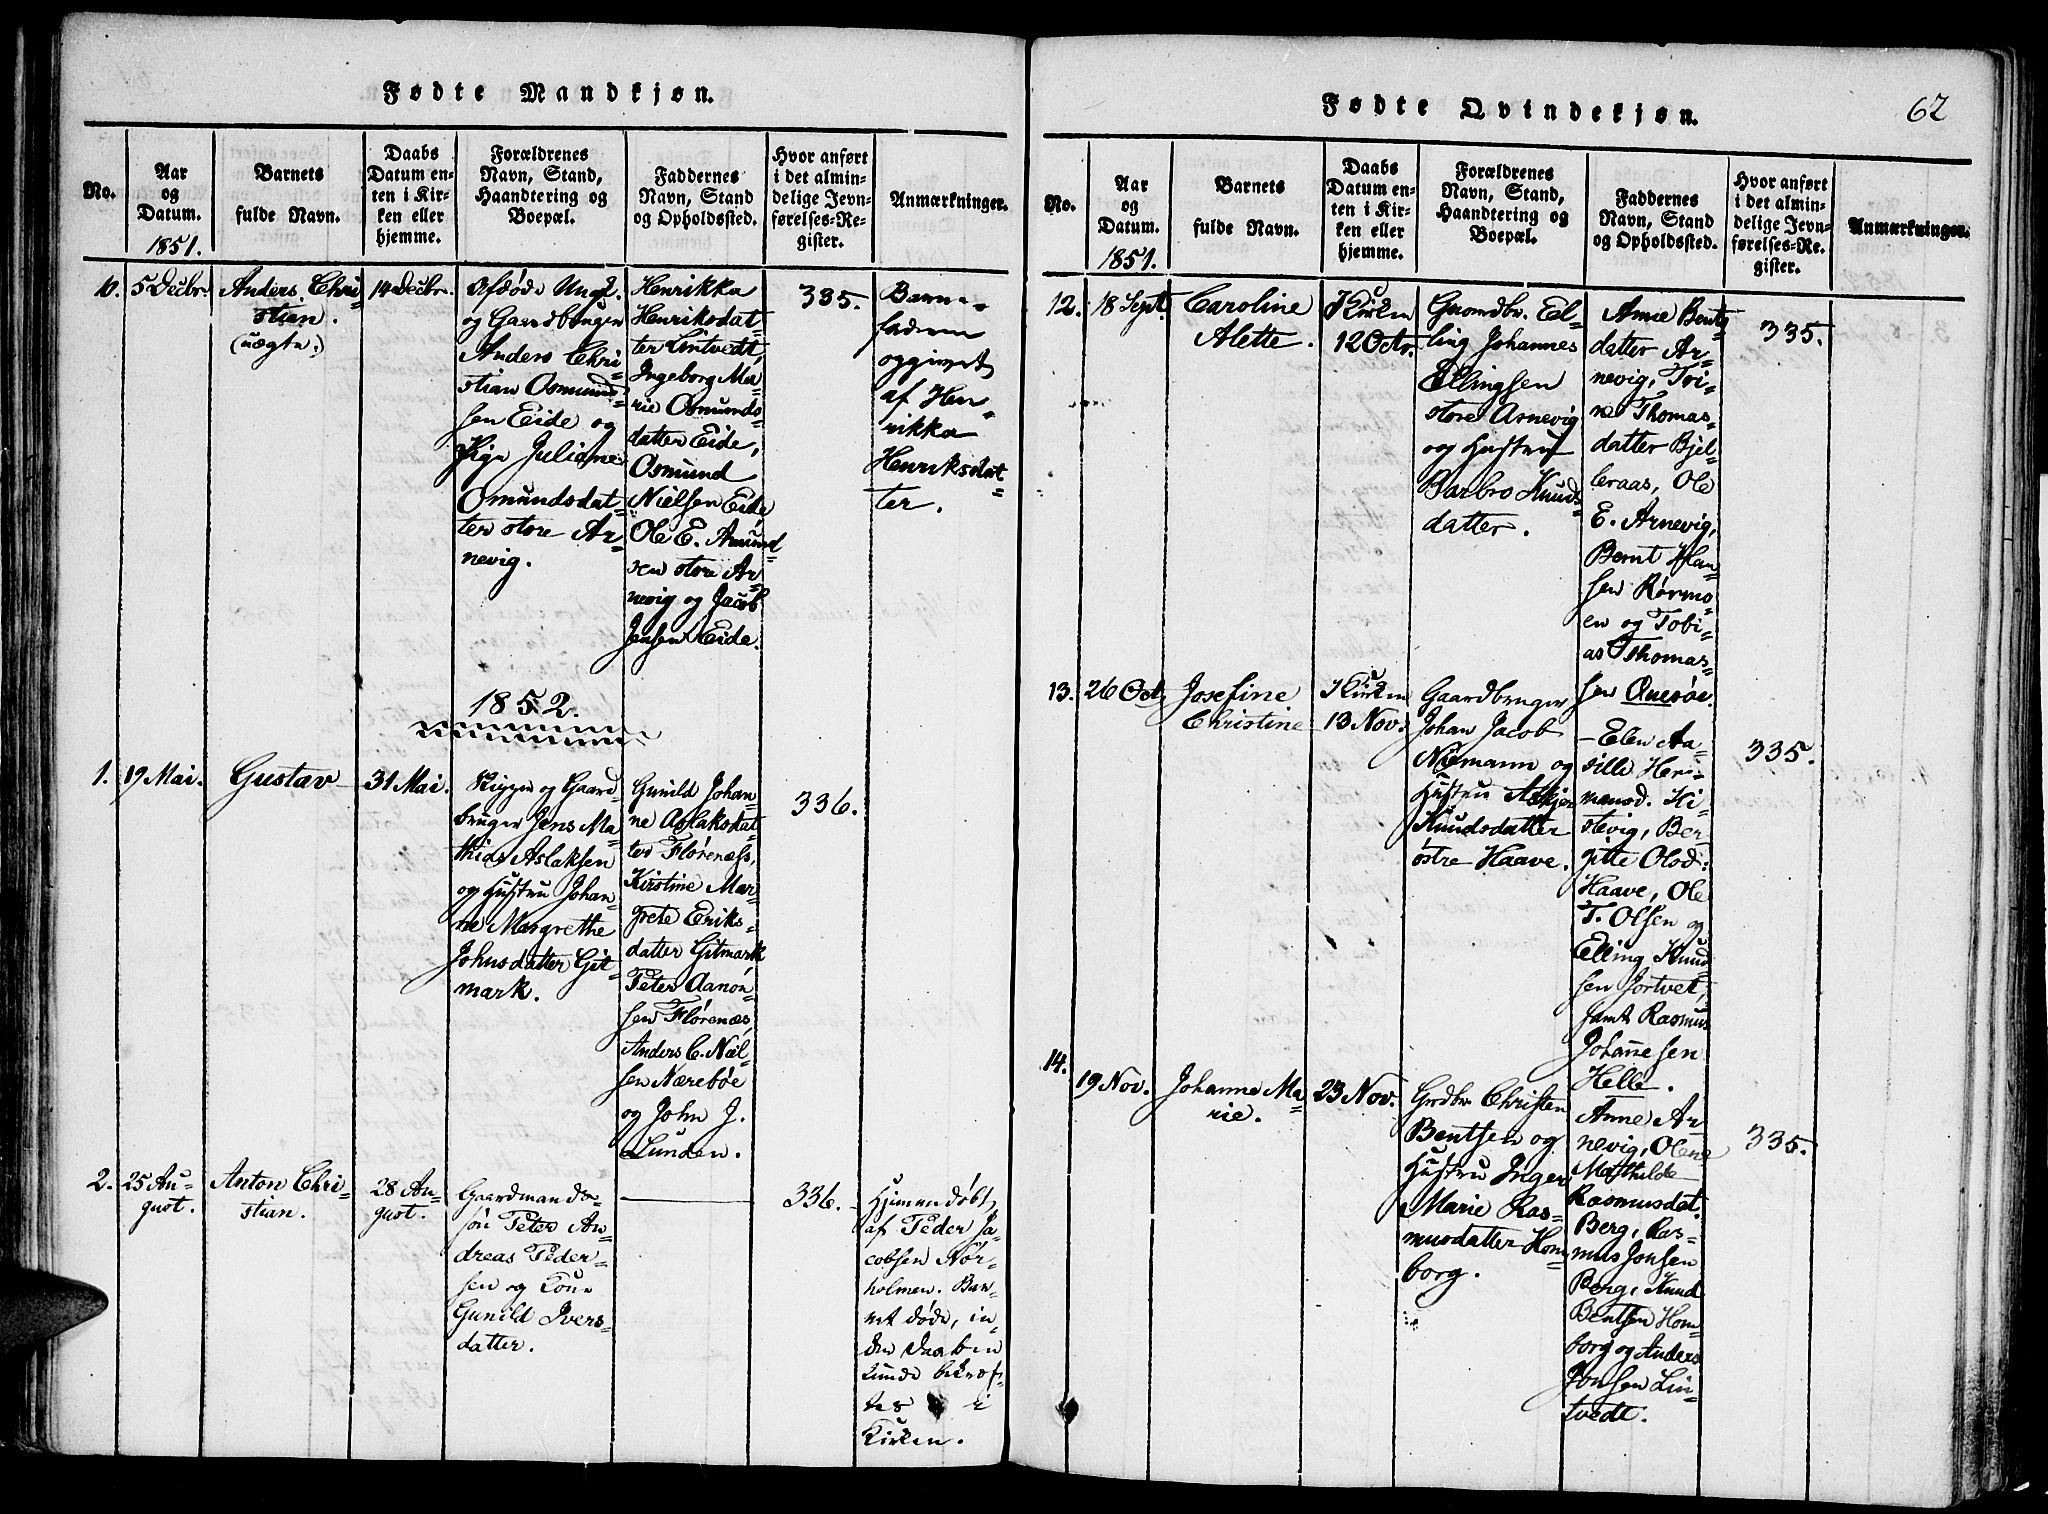 Fødte Mandkjøn.
No.
Aar
og
Datum.
1851.
Barnets
fulde Navn.
Daabs
Datum en-
ten i Kir-
ken eller
hjemme.
Forældrenes
Navn, Stand,
Haandtering og
Boepæl.
Faddernes
Navn, Stand
og Opholdssted.
Hvor anført
i det almin-
delige Jevn-
førelses-Re-
gister.
Anmærkninger.
10.
5 Decbr.
Anders Chri-
stian.
(uægte.)
14 Decbr.
Afdøde Ungk.
og Gaardbruger
Anders Chri-
stian Osmund-
sen Eide og
Pige Juliane
Omundsdat-
ter store Ar-
nevig.
Henrikka
Henriksdat-
ter Lintvedt,
Ingeborg Ma-
rie Osmunds-
datter Eide,
Osmund
Nielsen Eide,
Ole E. Amund-
sen store Ar-
nevig og Jacob
Jensen Eide.
335.
Barne-
faderen
opgivet
af Hen-
rikka
Henriksdat-
ter.
1852.
1.
19 Mai.
Gustav
31 Mai.
Skipper og Gaard-
bruger Jens Ma-
thias Aslaksen
og Hustru Johan-
ne Margrethe
Johnsdatter Git-
mark.
Gunild Johan-
ne Aslaksdat-
ter Flørenæss,
Kirstine Mar-
grete Eriks-
datter Gitmark,
Peter Aanon-
sen Flørenæs,
Anders C. Niel-
sen Nærebøe
og John J.
Lunden.
336.
2.
25 Au-
gust.
Anton Chri-
stian.
28 Au-
gust.
Gaardmands-
søn Peter An-
dreas Peder-
sen og Kone
Gunild Ivers-
datter.
336.
Hjemmedøbt
af Peder Ja-
cobsen Nor-
holmen. Bar-
net døde, in-
den Daaben
kunde bekræf-
tes i
Kirken.
Fødte Qvindekjøn.
62
No.
Aar
og
Datum.
1851.
Barnets
fulde Navn.
Daabs
Datum en-
ten i Kir-
ken eller
hjemme.
Forældrenes
Navn, Stand,
Haandtering og
Boepæl.
Faddernes
Navn, Stand
og Opholdssted.
Hvor anført
i det almin-
delige Jevn-
førelses-Re-
gister.
Anmærkninger.
12.
18 Sept.
Caroline
Alette.
I Kirken
12 Octr.
Gaardbr. El-
ling Johannes
Ellingsen
store Arnevig
og Hustru
Barbro Knuds-
datter.
Anne Bents-
datter Ar-
nevig, Tri-
ne Thomas-
datter Bjel-
leraas, Ole
E. Arnevig,
Bernt Han-
sen Rørmo-
en og Tobi-
as Thomas-
sen Qverøe.
335.
13.
26 Oct.
Josefine
Christine
I Kirken
13 Nov.
Gaardbruger
Johan Jacob
Niemann og
Hustru Askjer
Knudsdatter
østre Haave.
Elen Aa-
sille Her-
manod. Hi-
stevig, Ber-
gitte Olsd:
Haave, Ole
T. Olsen og
Elling Knud-
sen Jortvet,
samt Rasmus
Johannesen
Helle.
335.
14.
19 Nov.
Johanne Ma-
rie.
23 Nov.
Grdbr Christen
Bentsen og
Hustru Inger
Marie Ras-
musdatter Hom-
borg.
Anne Ar-
nevig, Olene
Mathilde
Rasmusdat.
Berg, Ras-
mus Jonsen
Berg, Knud
Bentsen Hom-
borg og Anders
Jonsen Lin-
tvedt.
335.